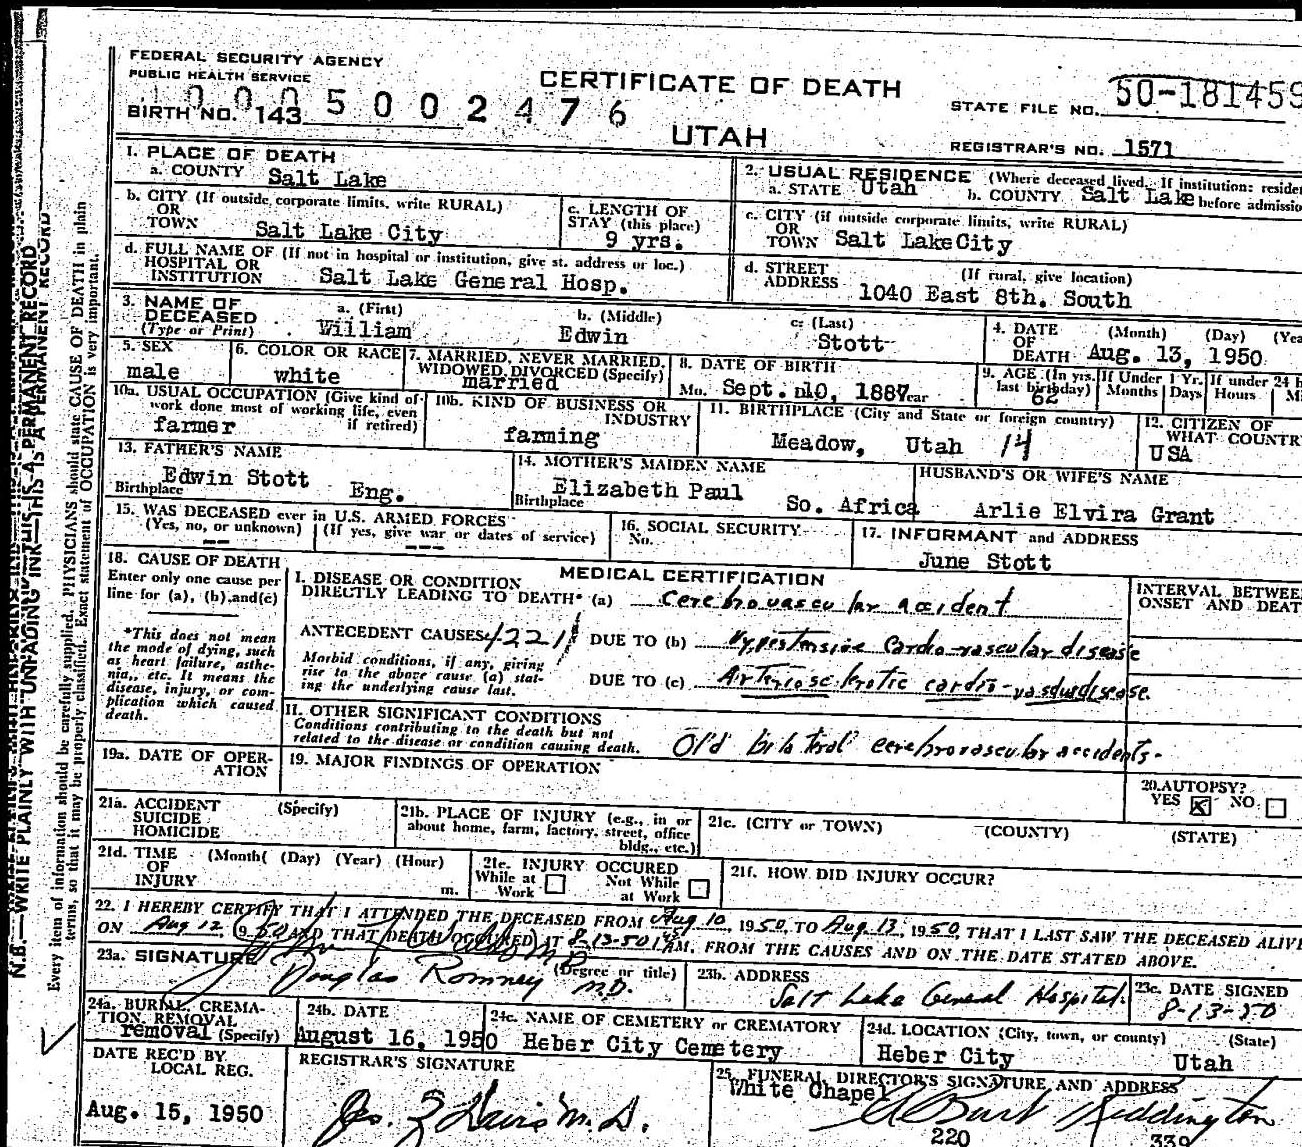 FEDERAL SECURITY AGENCY
PUBLIC HEALTH SERVICE
CERTIFICATE OF DEATH
UTAH
1 0 0 0 5 0 0 2 4 7 6
BIRTH NO. 143
STATE FILE NO. 50-181459
REGISTRAR'S NO. 1571
1. PLACE OF DEATH
a. COUNTY Salt Lake
2. USUAL RESIDENCE (Where deceased lived. If institution: reside
a. STATE Utah b. COUNTY Salt Lake before admissio
b. CITY (If outside corporate limits, write RURAL)
OR
TOWN Salt Lake City
c. LENGTH OF
STAY (this place)
9 yrs.
c. CITY (if outside corporate limits, write RURAL)
OR
TOWN Salt Lake City
d. FULL NAME OF (If not in hospital or institution, give st. address or loc.)
HOSPITAL OR
INSTITUTION Salt Lake General Hosp.
d. STREET (If rural, give location)
ADDRESS 1040 East 8th. South
3. NAME OF
DECEASED
(Type or Print)
a. (First) b. (Middle) c. (Last)
William Edwin Stott
4. DATE (Month) (Day) (Yea
OF
DEATH Aug. 13, 1950
5. SEX
male
6. COLOR OR RACE
white
7. MARRIED, NEVER MARRIED,
WIDOWED, DIVORCED (Specify)
married
8. DATE OF BIRTH
Mo. Sept. 10, 1887
9. AGE (In yrs. last birthday) If Under 1 Yr. If under 24 h
62 Months Days Hours Mi
10a. USUAL OCCUPATION (Give kind of
work done most of working life, even
if retired)
farmer
10b. KIND OF BUSINESS OR
INDUSTRY
farming
11. BIRTHPLACE (City and State or foreign country)
Meadow, Utah 14
12. CITIZEN OF
WHAT COUNTR
USA
13. FATHER'S NAME
Edwin Stott
Birthplace Eng.
14. MOTHER'S MAIDEN NAME
Elizabeth Paul
Birthplace So. Africa
HUSBAND'S OR WIFE'S NAME
Arlie Elvira Grant
15. WAS DECEASED ever in U.S. ARMED FORCES
(Yes, no, or unknown) (If yes, give war or dates of service)
-- ---
16. SOCIAL SECURITY
No.
17. INFORMANT and ADDRESS
June Stott
18. CAUSE OF DEATH
Enter only one cause per
line for (a), (b) and (c)
*This does not mean
the mode of dying, such
as heart failure, asthe-
nia, etc. It means the
disease, injury, or com-
plication which caused
death.
MEDICAL CERTIFICATION
INTERVAL BETWEE
ONSET AND DEAT
I. DISEASE OR CONDITION
DIRECTLY LEADING TO DEATH* (a) Cerebrovascular accident
ANTECEDENT CAUSES 4221 DUE TO (b) Hypertensive Cardio-vascular disease
Morbid conditions, if any, giving
rise to the above cause (a) stat-
ing the underlying cause last.
DUE TO (c) Arteriosclerotic cardio-vascular disease
II. OTHER SIGNIFICANT CONDITIONS
Conditions contributing to the death but not
related to the disease or condition causing death.
Old bilateral cerebrovascular accidents.
19a. DATE OF OPER-
ATION
19. MAJOR FINDINGS OF OPERATION
20. AUTOPSY?
YES X NO
21a. ACCIDENT (Specify)
SUICIDE
HOMICIDE
21b. PLACE OF INJURY (e.g., in or
about home, farm, factory, street, office
bldg., etc.)
21c. (CITY or TOWN) (COUNTY) (STATE)
21d. TIME (Month( (Day) (Year) (Hour)
OF
INJURY m.
21e. INJURY OCCURED
While at Work Not While at Work
21f. HOW DID INJURY OCCUR?
22. I HEREBY CERTIFY THAT I ATTENDED THE DECEASED FROM Aug 10, 1950, TO Aug. 13, 1950, THAT I LAST SAW THE DECEASED ALIVE
ON Aug 12, 1950 AND THAT DEATH OCCURED AT 8-13-50 AM. FROM THE CAUSES AND ON THE DATE STATED ABOVE.
23a. SIGNATURE (Degree or title)
Douglas Romney M.D.
23b. ADDRESS
Salt Lake General Hospital.
23c. DATE SIGNED
8-13-50
24a. BURIAL, CREMA-
TION, REMOVAL
removal (Specify)
24b. DATE
August 16, 1950
24c. NAME OF CEMETERY or CREMATORY
Heber City Cemetery
24d. LOCATION (City, town, or county) (State)
Heber City Utah
DATE REC'D BY
LOCAL REG.
Aug. 15, 1950
REGISTRAR'S SIGNATURE
25. FUNERAL DIRECTOR'S SIGNATURE AND ADDRESS
White Chapel
220 339
N.B.—WRITE PLAINLY WITH UNFADING INK—THIS IS A PERMANENT RECORD
Every item of information should be carefully supplied. PHYSICIANS should state CAUSE OF DEATH in plain
terms, so that it may be properly classified. Exact statement of OCCUPATION is very important.